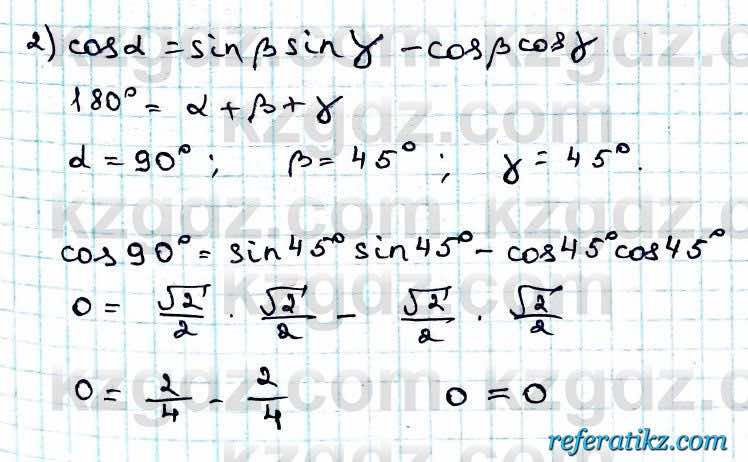 2) cos α = sin β sin γ − cos β cos γ
180° = α + β + γ
α = 90° ; β = 45° ; γ = 45°.
cos 90° = sin 45° sin 45° − cos 45° cos 45°
0 = √2/2 · √2/2 − √2/2 · √2/2
0 = 2/4 − 2/4 0 = 0
kzgdz.com
referatikz.com